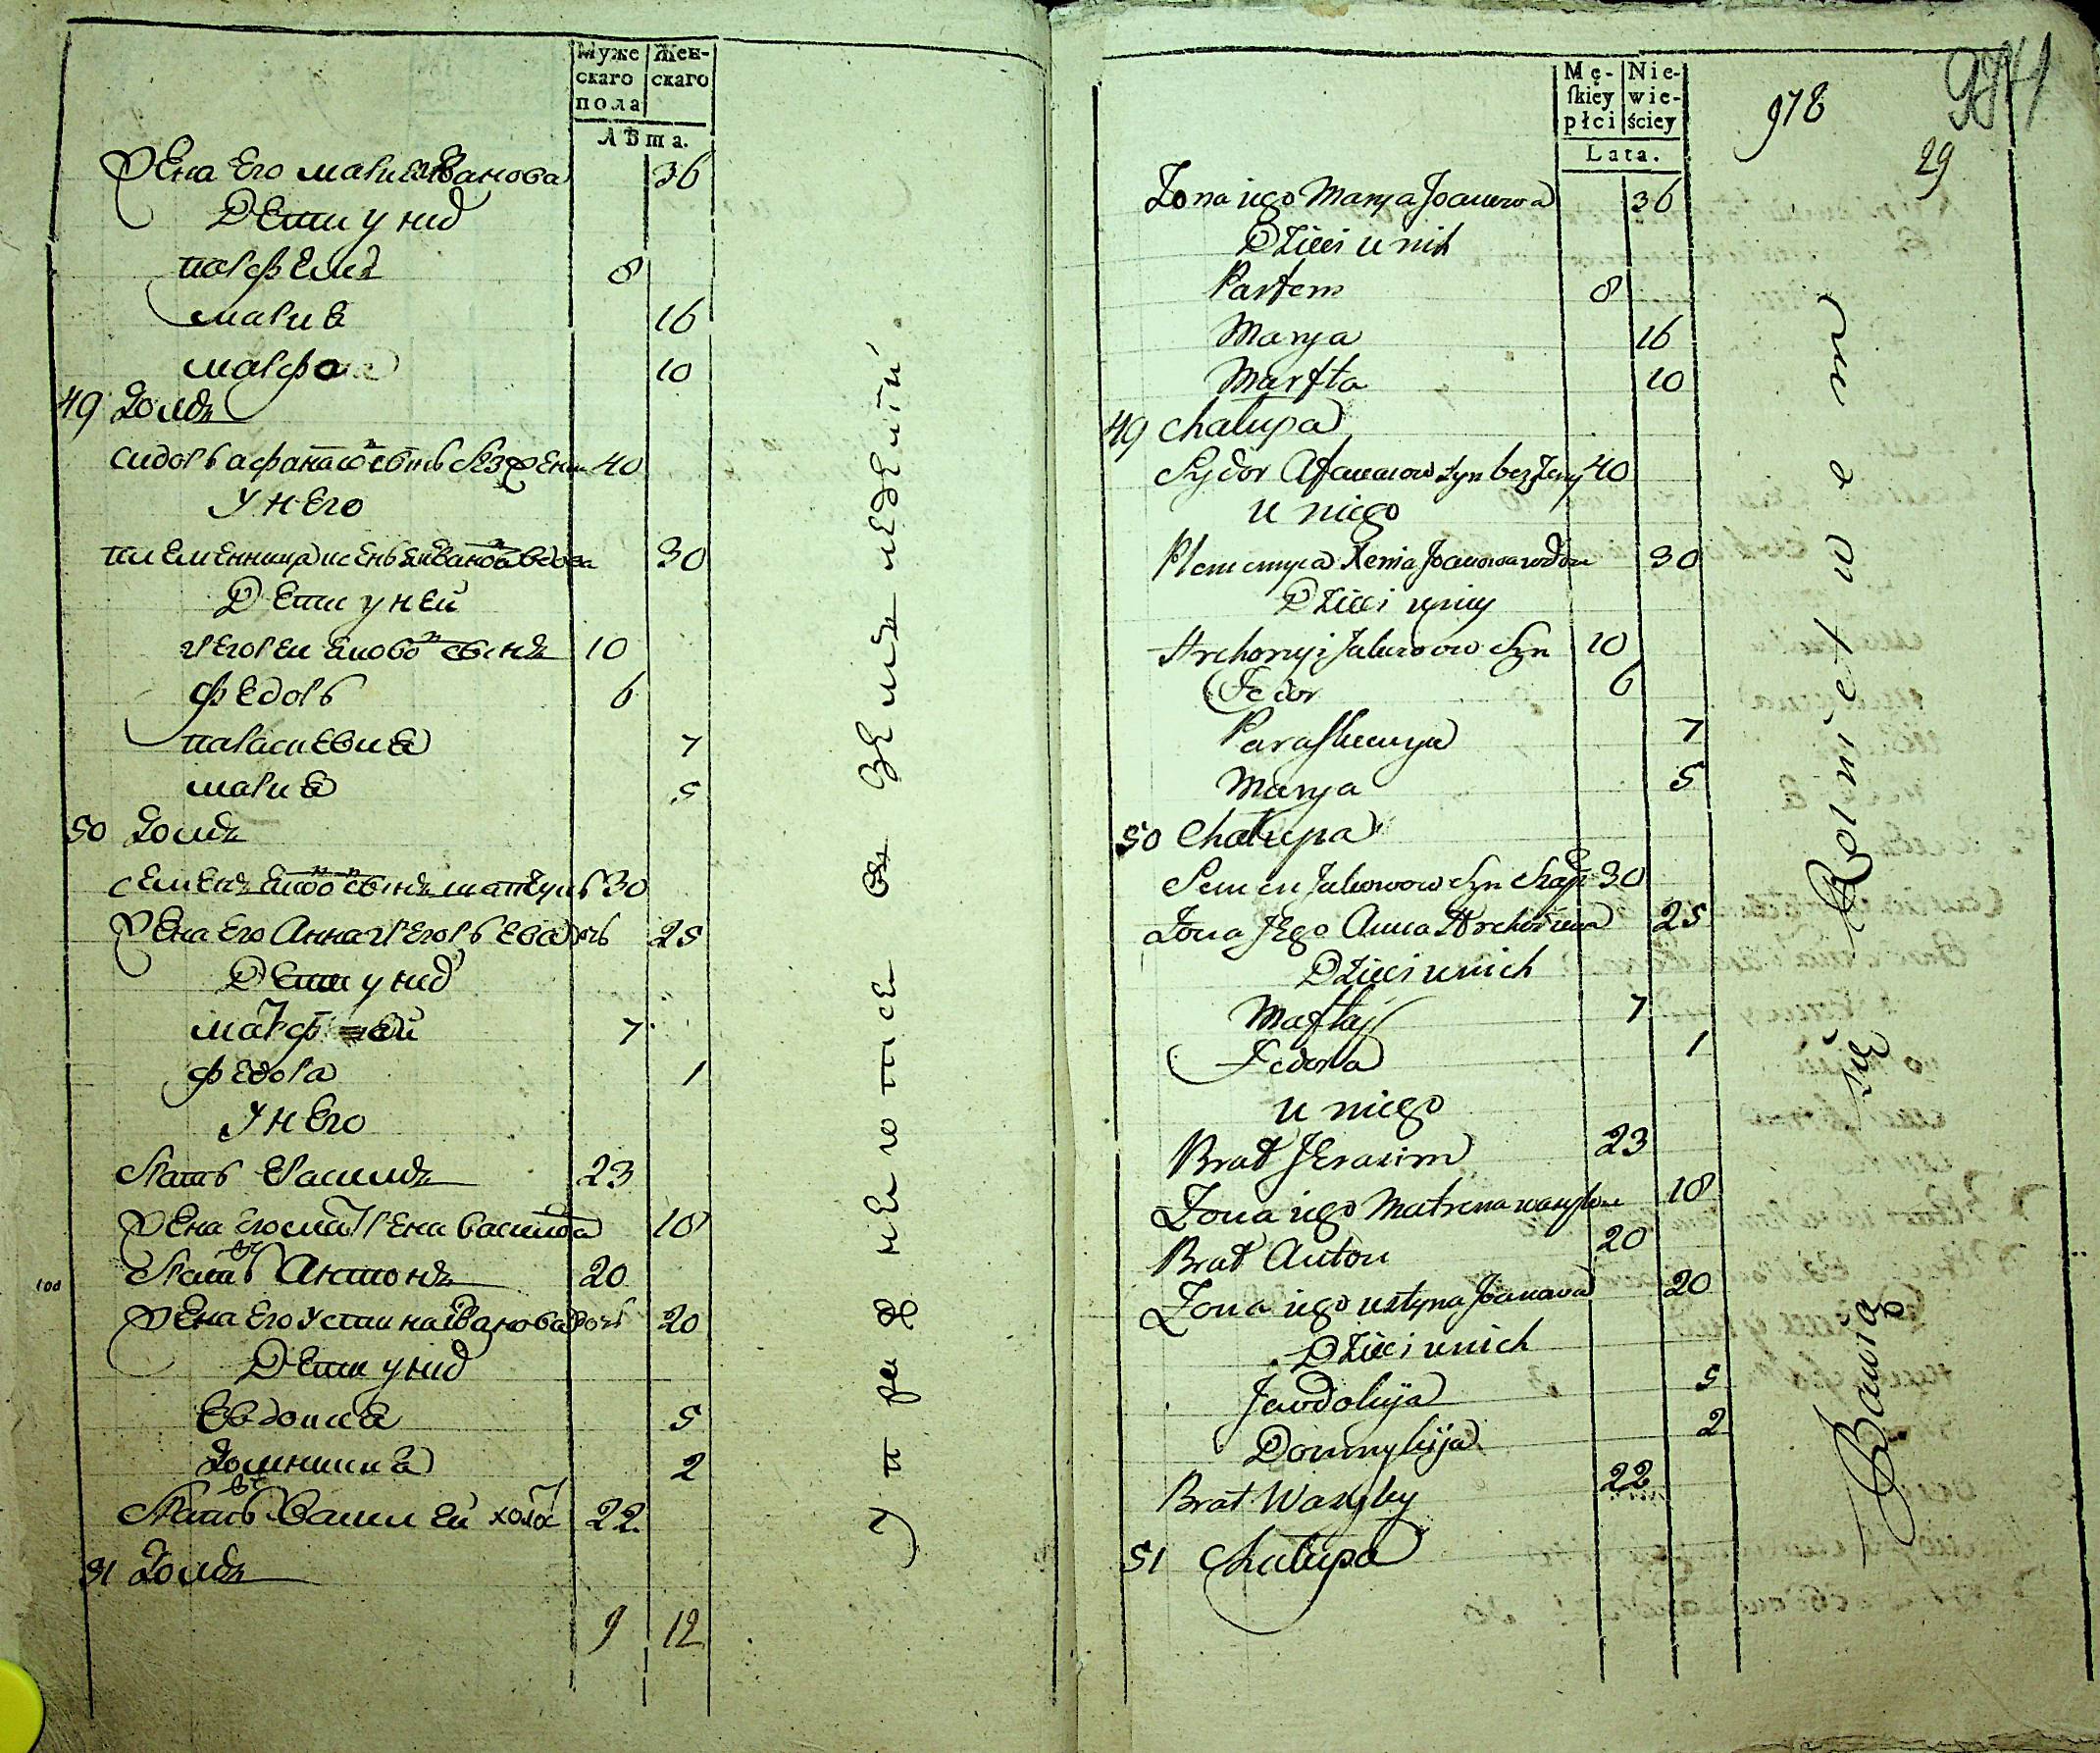 Муже
скаго
пола
Жен-
скаго
Лѣта.
Жена Его мариѧ Иванова 36
Дети у них
парфемъ 8
мариѧ 16
марфа 10
49 домъ
сидоръ афанасовъ сынъ без жены 40
У нЕго
племенница ксеньѧ Иванова вдова 30
Дети у ней
грегорей ѧковов сынъ 10
федоръ 6
парасковиѧ 7
мариѧ 5
50 домъ
семенъ ѧковов сынъ шапкунъ 30
Жена Его Анна грегорьева дочь 25
Дети у них
матфей 7
федора 1
У нЕго
братъ Расимъ 23
Жена Его матрена василова 18
братъ Антонъ 20
Жена Его устина Иванова дочь 20
Дети у них
Евдокиѧ 5
домникиѧ 2
братъ Василей холос 22
51 домъ
9 12
Упражнеютсе въ земледелїи
Mę-
skiey
płci
Nie-
wie-
ściey
Lata.
978
974
29
Zona iego Marya Joanowa 36
Dzieci u nich
Partem 8
Marya 16
Marfta 10
49 Chałupa
Sydor Afanasow syn bez żeny 40
u niego
Plemennyca Xenia Joanowa wdowa 30
Dzieci u niey
Hrehoryi Jakowow Syn 10
Fedor 6
Paraskewya 7
Marya 5
50 Chałupa
Semen Jakowow Syn Szap 30
Zona Jego Anna Hrehorewa 25
Dzieci u nich
Maftej 7
Fedora 1
u niego
Brat JErasim 23
Zona iego Matrena wasylowa 18
Brat Anton 20
Zona iego ustyna Joanowa 20
Dzieci u nich
Jewdokija 5
Domnykija 2
Brat Wasyley 22
51 Chałupa
Bawią się Rolnictwem